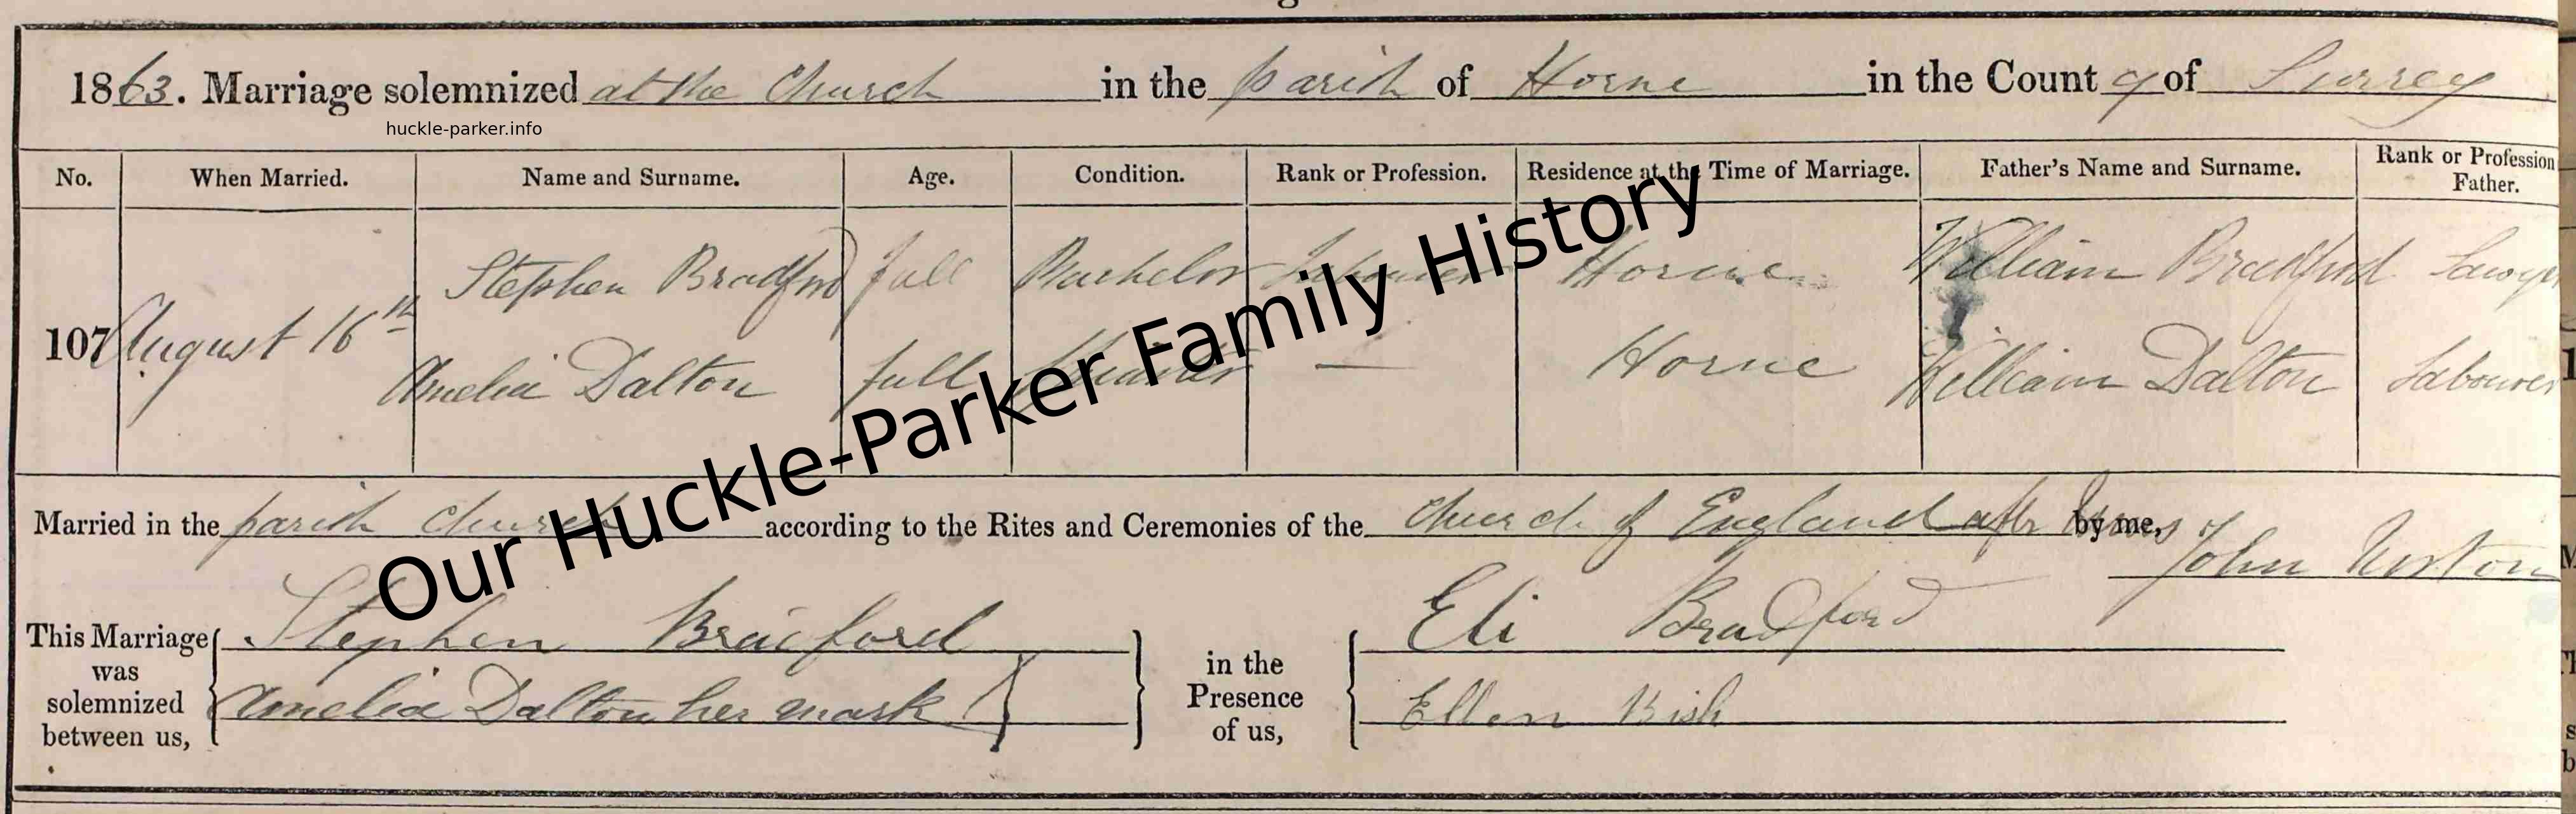 1863. Marriage solemnized at the Church in the parish of Horne in the County of Surrey
huckle-parker.info
No. When Married. Name and Surname. Age. Condition. Rank or Profession. Residence at the Time of Marriage. Father's Name and Surname. Rank or Profession
Father.
Stephen Bradford full Bachelor Labourer Horne William Bradford Sawyer
107 August 16th
Amelia Dalton full Spinster — Horne William Dalton Labourer
Our Huckle-Parker Family History
Married in the parish church according to the Rites and Ceremonies of the Church of England after Banns by me,
John
This Marriage Stephen Bradford Eli Bradford
was in the
solemnized Amelia Dalton her mark Presence Ellen Bish
between us, of us,